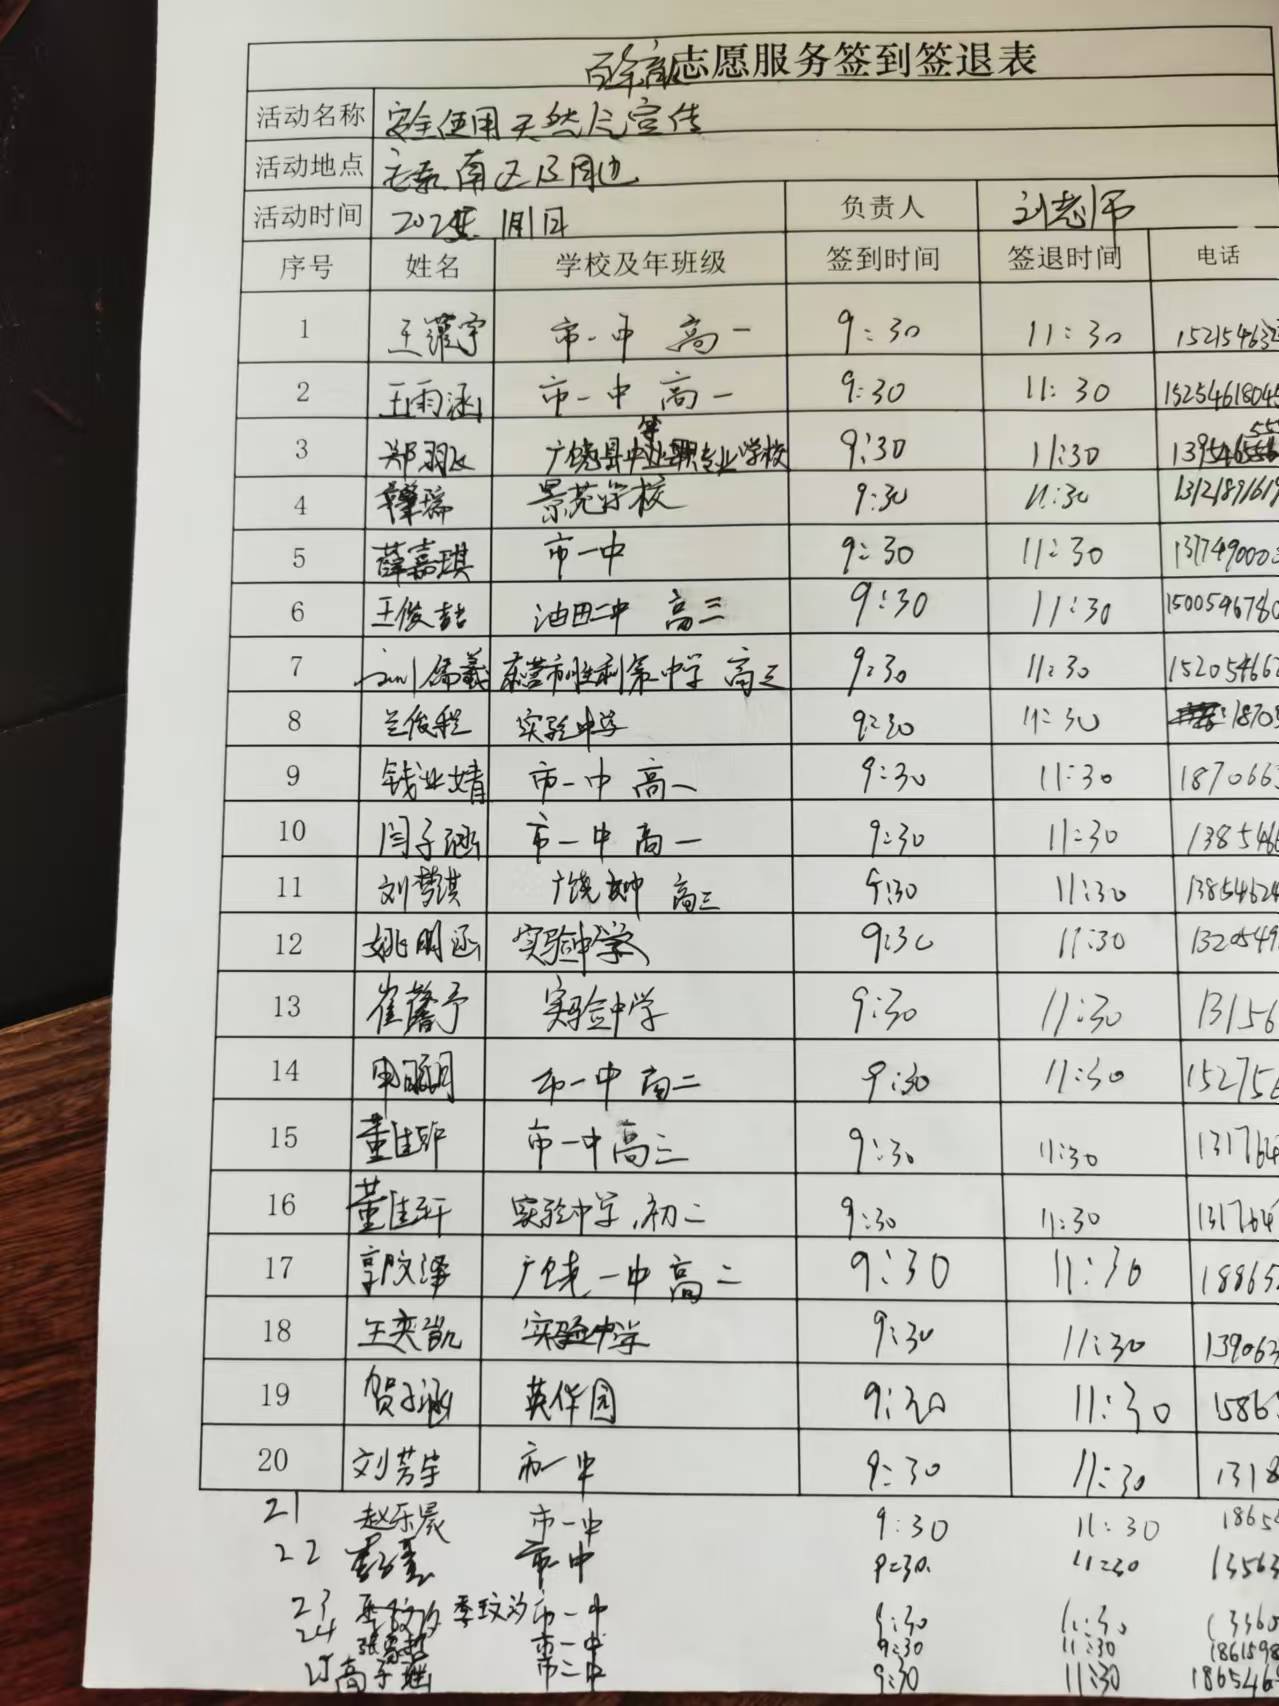 志愿服务签到签退表
活动名称 安全使用天然气宣传
活动地点 南区及周边
活动时间 1月1日 负责人 刘老师
序号 姓名 学校及年班级 签到时间 签退时间 电话
1 王 宇 市一中 高一 9:30 11:30 152154632
2 王雨涵 市一中 高一 9:30 11:30 1525461804
3 郑羽 广饶县中等 职专业学校 9:30 11:30
4 瑞 景苑学校 9:30 11:30 1312189161
5 薛嘉琪 市一中 9:30 11:30 131749000
6 王俊喆 油田二中 高三 9:30 11:30 1500596780
7 东营市胜利第一中学 高三 9:30 11:30 15205466
8 兰俊程 实验中学 9:30 11:30 1870
9 钱业婧 市一中 高一 9:30 11:30 1870663
10 闫子涵 市一中 高一 9:30 11:30 138546
11 刘梦琪 广饶 中 高三 9:30 11:30 13854624
12 姚明涵 实验中学 9:30 11:30 1320549
13 崔馨予 实验中学 9:30 11:30 13156
14 申 市一中 高二 9:30 11:30 15275
15 董佳 市一中高三 9:30 11:30 131764
16 董佳轩 实验中学,初二 9:30 11:30 131764
17 广饶一中 高二 9:30 11:30 18865
18 王奕凯 实验中学 9:30 11:30 139063
19 贺子涵 英华园 9:30 11:30 1586
20 刘芳宇 市一中 9:30 11:30 1318
21 赵乐晨 市一中 9:30 11:30 1865
22 市一中 9:30 11:30 13563
23 季玟汐 市一中 9:30 11:30 13360
24 张 市一中 9:30 11:30 1861598
25 高子 市二中 9:30 11:30 186546